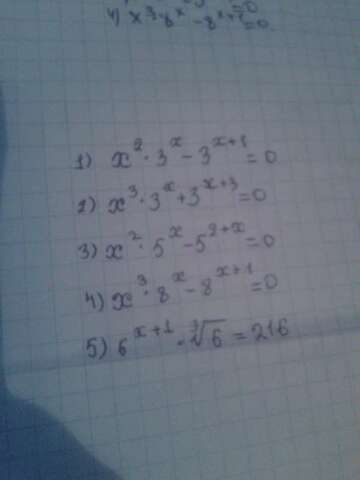 4) x³·8ˣ-8ˣ⁺¹=0
1) x²·3ˣ-3ˣ⁺¹=0
2) x³·3ˣ+3ˣ⁺³=0
3) x²·5ˣ-5²⁺ˣ=0
4) x³·8ˣ-8ˣ⁺¹=0
5) 6ˣ⁺¹·∛6=216